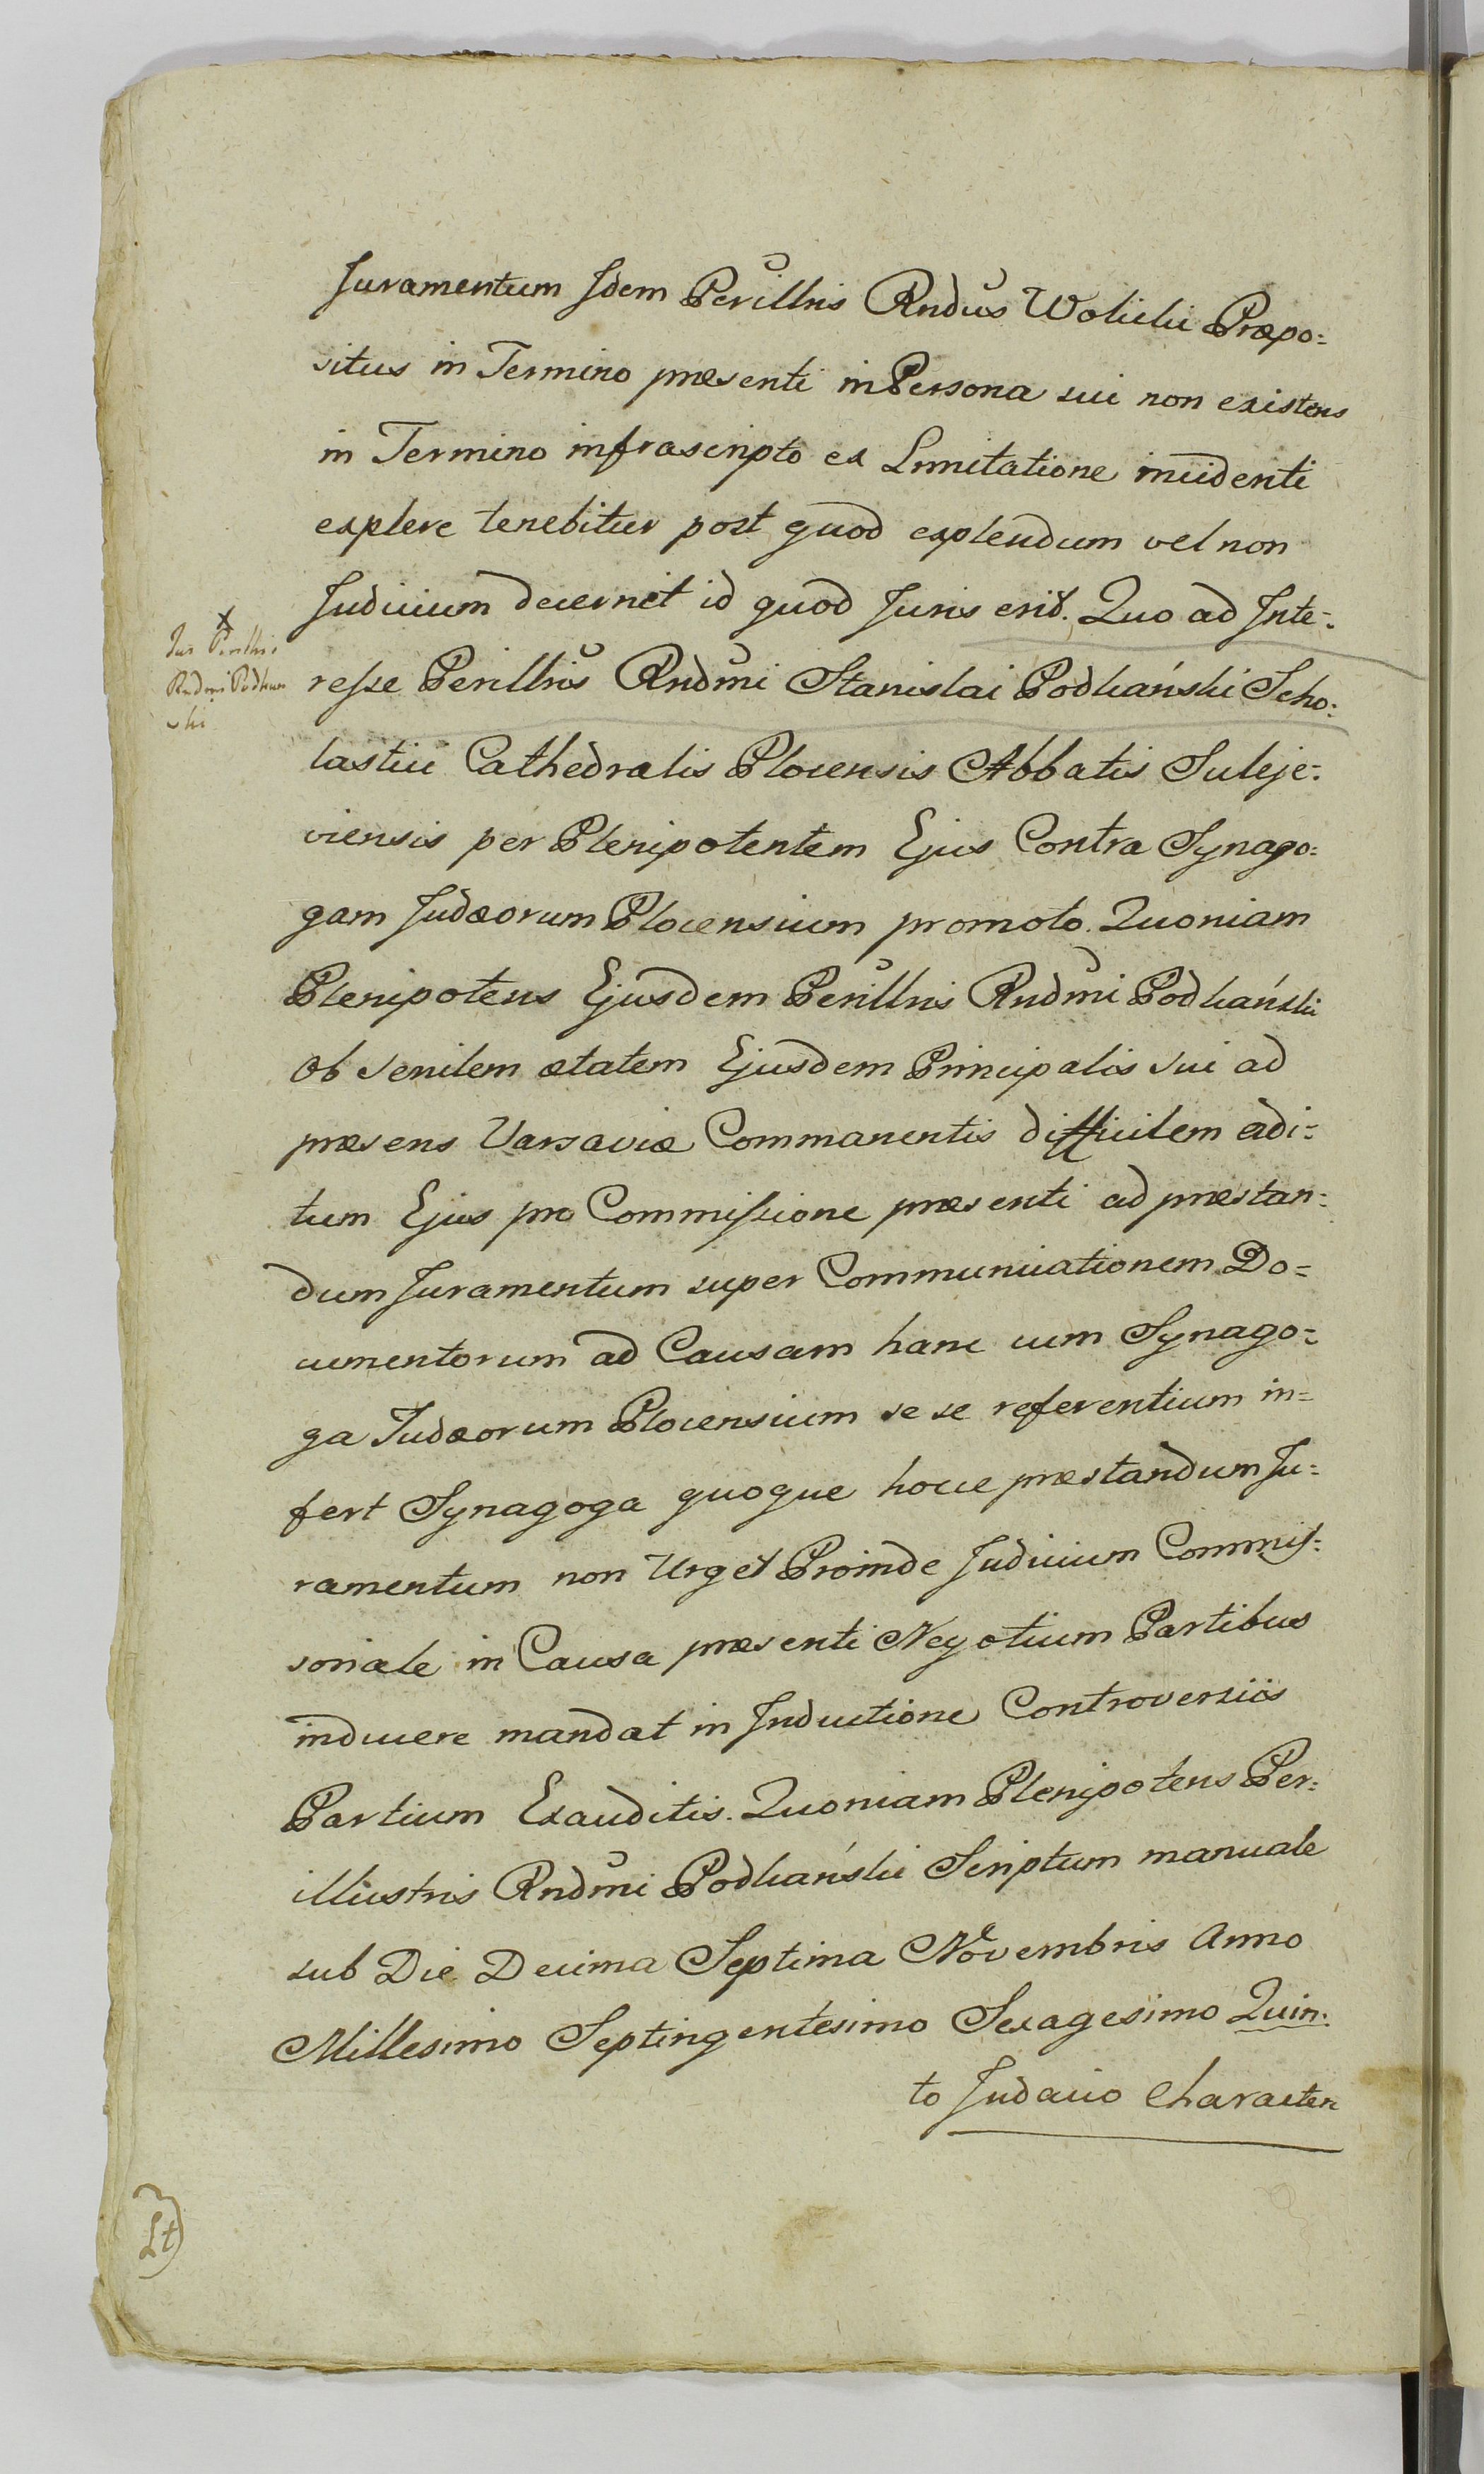 Juramentum Idem Perillris Rndus Wolicki Præpo:
situs in Termino præsenti in Persona sui non existens
in Termino infrascripto ex Limitatione incidenti
explere tenebitur post quod explendum vel non
Judicium decernet id quod Juris erit. Quo ad Inte:
resse Perillris Rndmi Stanislai Podkański Scho:
lastici Cathedralis Plocensis Abbatis Suleje:
viensis per Plenipotentem Ejus Contra Synago:
gam Judæorum Plocensium promoto. Quoniam
Plenipotens Ejusdem Perillris Rndmi Podkański
Ob senilem ætatem Ejusdem Principalis sui ad
præsens Varsaviæ Commanentis difficilem adi:
tum Ejus pro Commissione præsenti ad præstan:
dum Juramentum super Communicationem Do=
cumentorum ad Causam hanc cum Synago=
ga Judæorum Plocensium se se referentium in=
fert Synagoga quoque hocce præstandum Ju:
ramentum non Urget Proinde Judicium Commis:
soriale in Causa præsenti Negotium Partibus
inducere mandat in Inductione Controversiis
Partium Exauditis. Quoniam Plenipotens Per:
illustris Rndmi Podkański Scriptum manuale
sub Die Decima Septima Novembris Anno
Millesimo Septingentesimo Sexagesimo Quin:
to Judaico Character
Perillris
Rndmi Podkan
ski